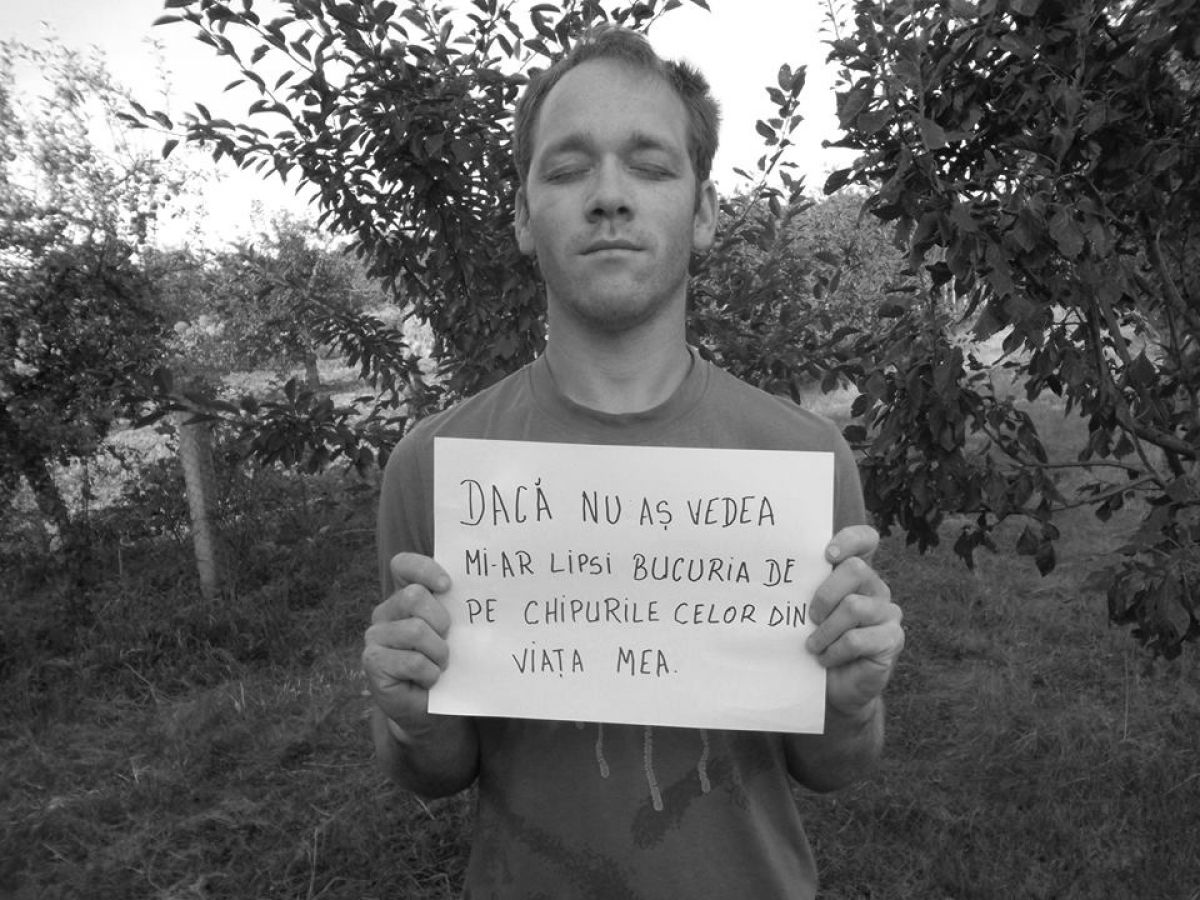 DACĂ NU AȘ VEDEA
MI-AR LIPSI BUCURIA DE
PE CHIPURILE CELOR DIN
VIAȚA MEA.